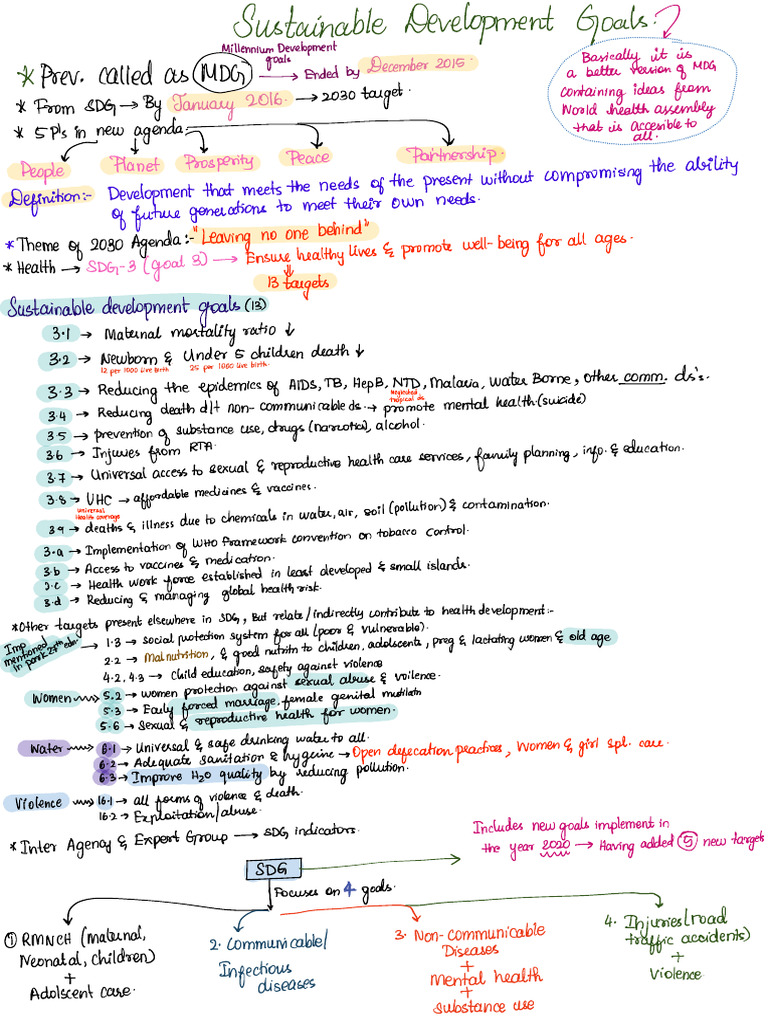 Sustainable Development Goals?
Millennium Development goals
* Prev. called as MDG → Ended by December 2015
* From SDG → By January 2016 → 2030 target
* 5P's in new agenda
People Planet Prosperity Peace Partnership
Basically it is
a better version of MDG
containing ideas from
World health assembly
that is accesible to
all.
Definition:- Development that meets the needs of the present without compromising the ability
of future generations to meet their own needs.
* Theme of 2030 Agenda:- "Leaving no one behind"
* Health → SDG-3 (goal 3) → Ensure healthy lives & promote well-being for all ages.
13 targets
Sustainable development goals (13)
3.1 → Maternal mortality ratio ↓
3.2 → Newborn & Under 5 children death ↓
12 per 1000 live birth 25 per 1000 live birth
3.3 → Reducing the epidemics of AIDS, TB, Hep B, NTD, Malaria, Water Borne, other comm. ds's.
Neglected tropical ds
3.4 → Reducing death d/t non-communicable ds. → promote mental health. (suicide)
3.5 → prevention of substance use, drugs (narcotics), alcohol.
3.6 → Injuries from RTA.
3.7 → Universal access to sexual & reproductive health care services, family planning, info. & education.
3.8 → UHC → affordable medicines & vaccines.
Universal health coverage
3.9 → deaths & illness due to chemicals in water, air, soil (pollution) & contamination.
3.a → Implementation of WHO framework convention on tobacco control.
3.b → Access to vaccines & medication.
3.c → Health work force established in least developed & small islands.
3.d → Reducing & managing global health risk.
* Other targets present elsewhere in SDG, But relate/indirectly contribute to health development:-
Imp mentioned in park 27th edn.
1.3 → social protection system for all (poor & vulnerable).
2.2 → Malnutrition, & good nutritn to children, adolescents, preg & lactating women & old age
4.2, 4.3 → Child education, safety against violence
Women → 5.2 → women protection against sexual abuse & voilence.
5.3 → Early forced marriage, female genital mutilatn
5.6 → Sexual & reproductive health for women.
Water → 6.1 → Universal & safe drinking water to all.
6.2 → Adequate sanitation & hygeine → Open defecation practices, Women & girl spl. care.
6.3 → Improve H2O quality by reducing pollution.
Violence → 16.1 → all forms of violence & death.
16.2 → Exploitation/abuse.
* Inter Agency & Expert Group → SDG indicators.
Includes new goals implement in
the year 2020 → Having added 5 new targets
SDG
Focuses on 4 goals.
① RMNCH (maternal,
Neonatal, children)
+
Adolscent care.
2. Communicable/
Infectious
diseases
3. Non-communicable
Diseases
+
Mental health
+
substance use
4. Injuries (road
traffic accidents)
+
Violence.